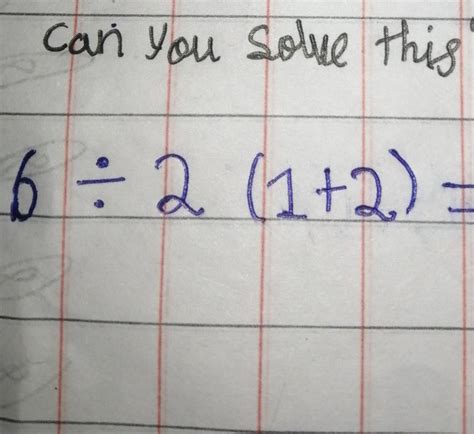 Can you solve this
6 ÷ 2 (1+2) =